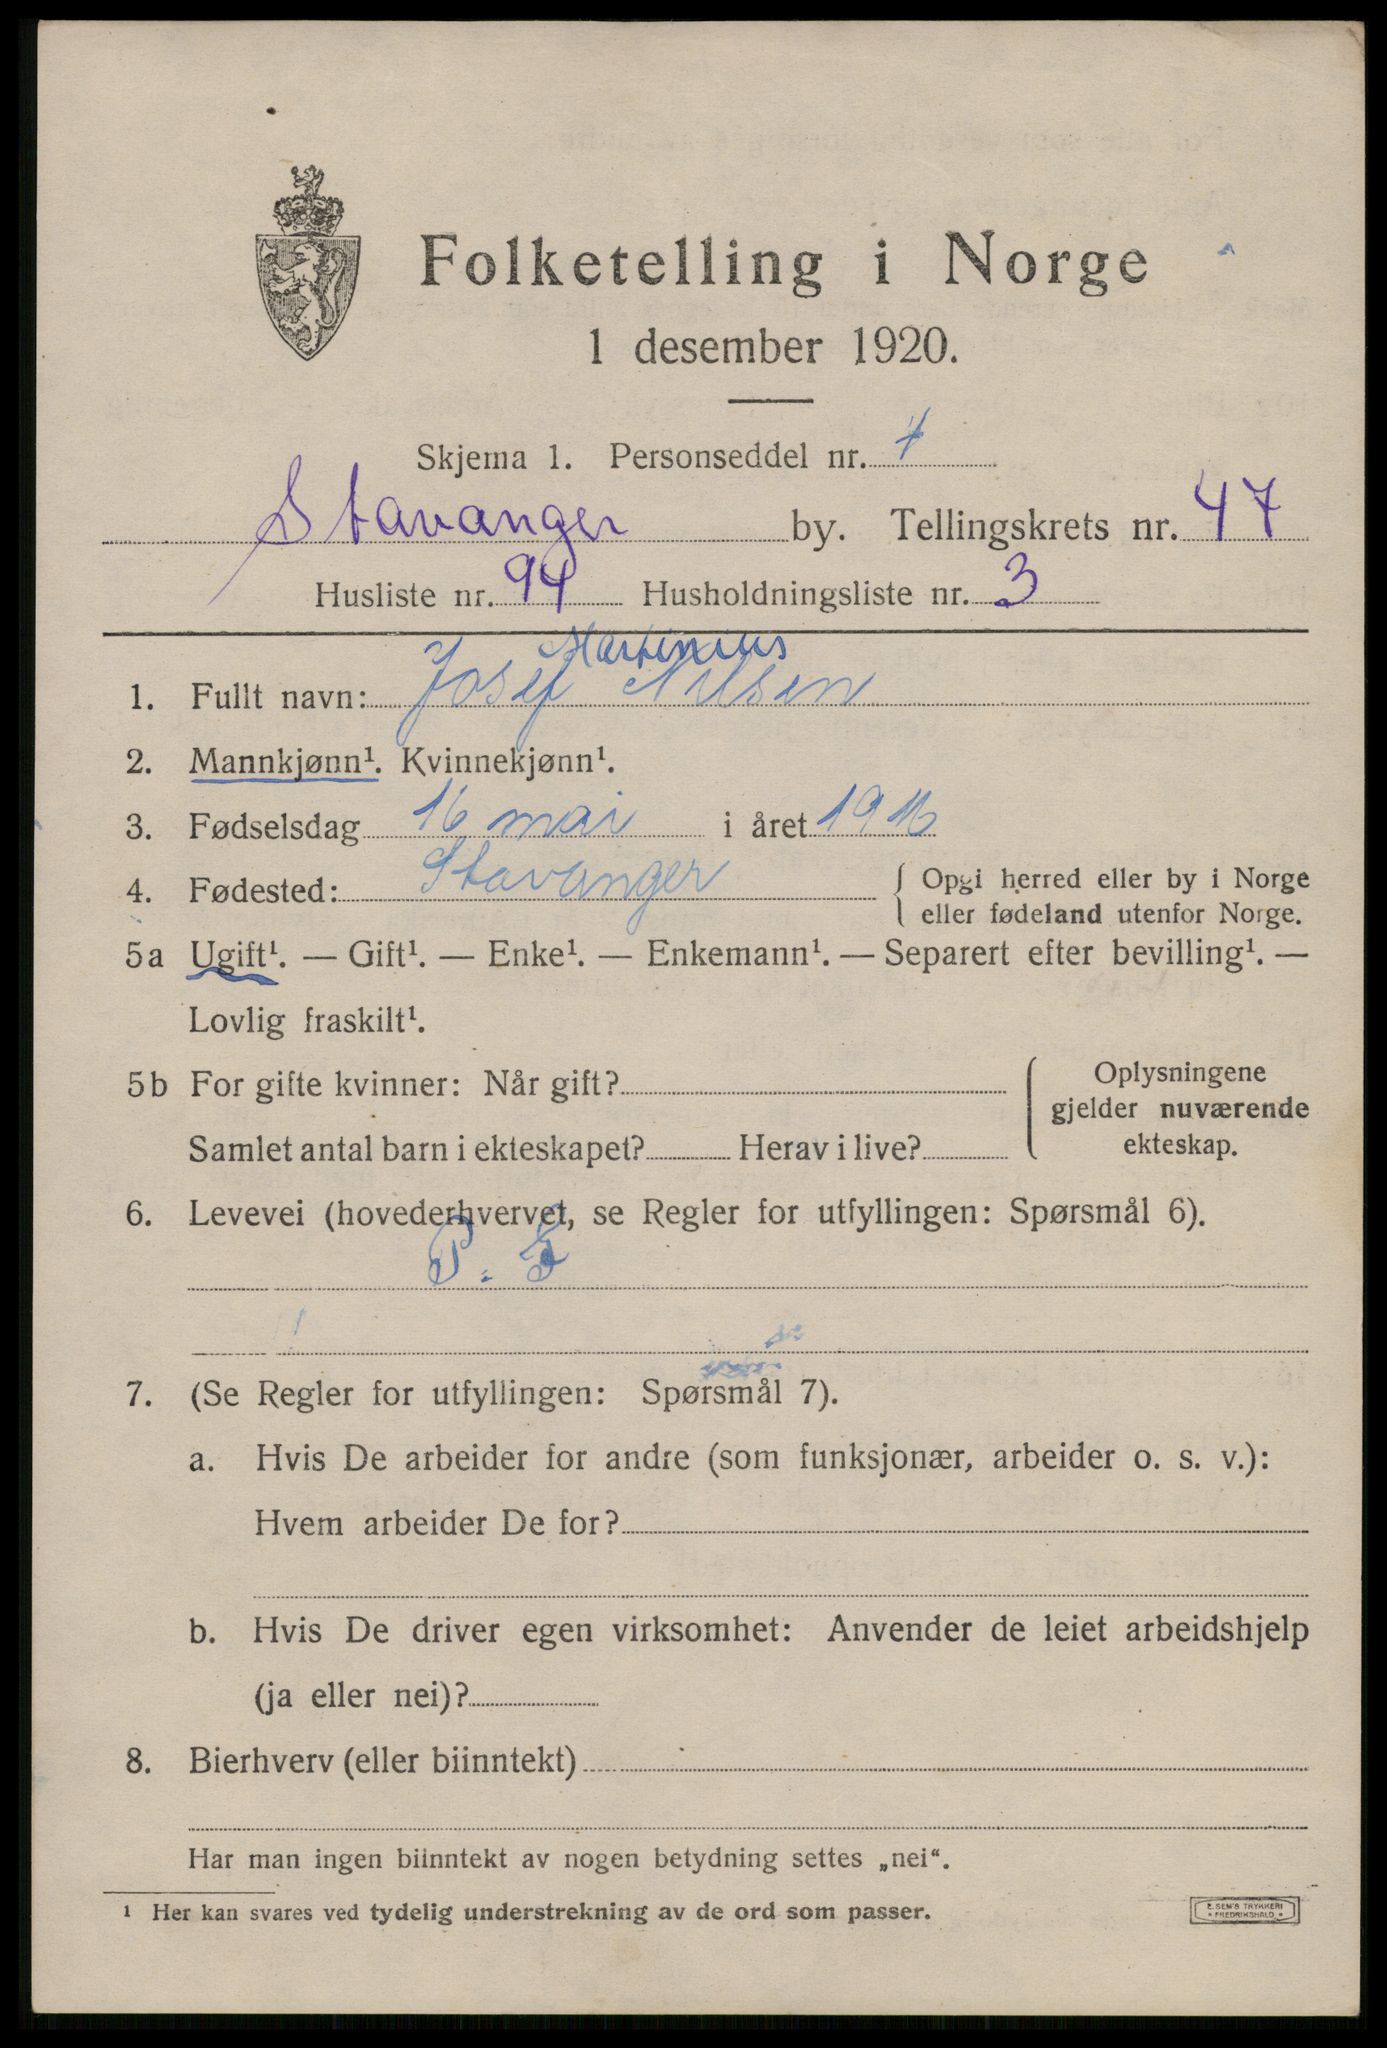 Folketelling i Norge
1 desember 1920.
Skjema 1. Personseddel nr.
Stavanger by. Tellingskrets nr. 47
Husliste nr. 94 Husholdningsliste nr. 3
Martinius
1. Fullt navn: Josef Nilsen
2. Mannkjønn¹. Kvinnekjønn¹.
3. Fødselsdag 16 mai i året 1916
4. Fødested: Stavanger { Opgi herred eller by i Norge
eller fødeland utenfor Norge.
5a Ugift¹. — Gift¹. — Enke¹. — Enkemann¹. — Separert efter bevilling¹. —
Lovlig fraskilt¹.
5b For gifte kvinner: Når gift? { Oplysningene
gjelder nuværende
Samlet antal barn i ekteskapet? Herav i live? ekteskap.
6. Levevei (hovederhvervet, se Regler for utfyllingen: Spørsmål 6).
P.
7. (Se Regler for utfyllingen: Spørsmål 7).
a. Hvis De arbeider for andre (som funksjonær, arbeider o. s. v.):
Hvem arbeider De for?
b. Hvis De driver egen virksomhet: Anvender de leiet arbeidshjelp
(ja eller nei)?
8. Bierhverv (eller biinntekt)
Har man ingen biinntekt av nogen betydning settes „nei“.
¹ Her kan svares ved tydelig understrekning av de ord som passer.
E. SEM'S TRYKKERI
FREDRIKSHALD